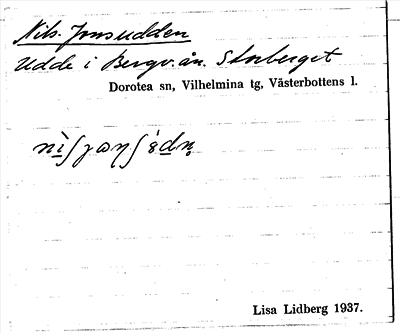 Nils-Jonsudden
Udde i Bergv.ån. Storberget
Dorotea sn, Vilhelmina tg, Västerbottens l.
Lisa Lidberg 1937.